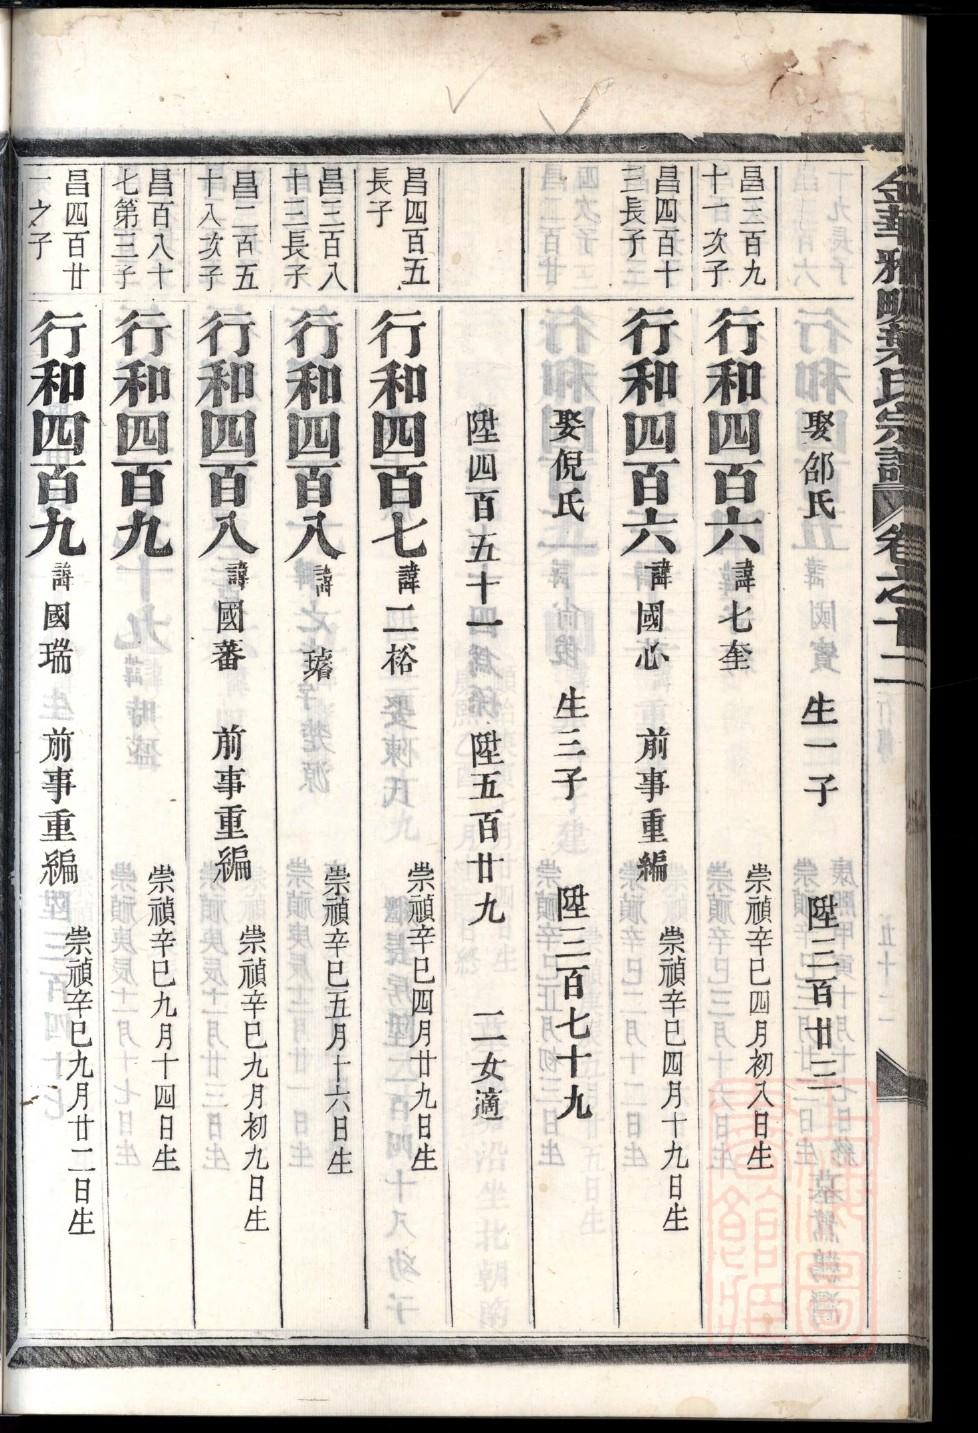 金華雅畈葉氏宗譜 卷之十二
娶邵氏 生一子 陞三百廿三
昌三百九十一次子 行和四百六 諱七奎 崇禎辛巳四月初八日生
昌四百十三長子 行和四百六 諱國心 前事重編 崇禎辛巳四月十九日生
娶倪氏 生三子 陞三百七十九
陞四百五十一 陞五百廿九 二女適
昌四百五長子 行和四百七 諱二裕 崇禎辛巳四月廿九日生
昌三百八十三長子 行和四百八 諱 崇禎辛巳五月十六日生
昌二百五十八次子 行和四百八 諱國蕃 前事重編 崇禎辛巳九月初九日生
昌百八十七第三子 行和四百九 崇禎辛巳九月十四日生
昌四百廿一之子 行和四百九 諱國瑞 前事重編 崇禎辛巳九月廿二日生